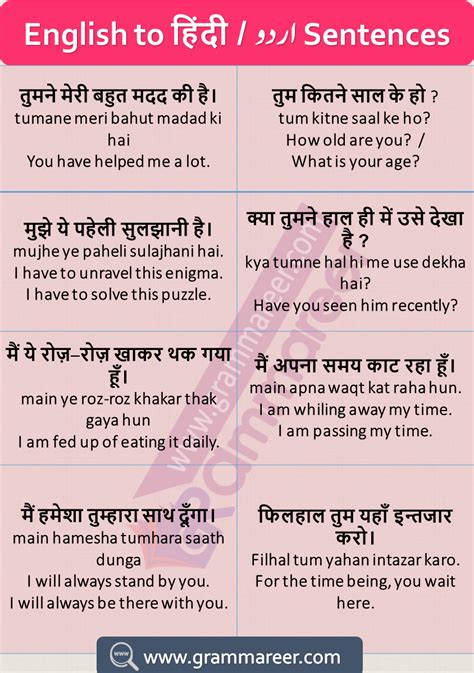 English to हिंदी / اردو Sentences
तुमने मेरी बहुत मदद की है।
tumane meri bahut madad ki
hai
You have helped me a lot.
तुम कितने साल के हो ?
tum kitne saal ke ho?
How old are you?  /
What is your age?
मुझे ये पहेली सुलझानी है।
mujhe ye paheli sulajhani hai.
I have to unravel this enigma.
I have to solve this puzzle.
क्या तुमने हाल ही में उसे देखा
है ?
kya tumne hal hi me use dekha
hai?
Have you seen him recently?
मैं ये रोज़–रोज़ खाकर थक गया
हूँ।
main ye roz-roz khakar thak
gaya hun
I am fed up of eating it daily.
मैं अपना समय काट रहा हूँ।
main apna waqt kat raha hun.
I am whiling away my time.
I am passing my time.
मैं हमेशा तुम्हारा साथ दूँगा।
main hamesha tumhara saath
dunga
I will always stand by you.
I will always be there with you.
फिलहाल तुम यहाँ इन्तजार
करो।
Filhal tum yahan intazar karo.
For the time being, you wait
here.
www.grammareer.com
Grammareer
www
www.grammareer.com